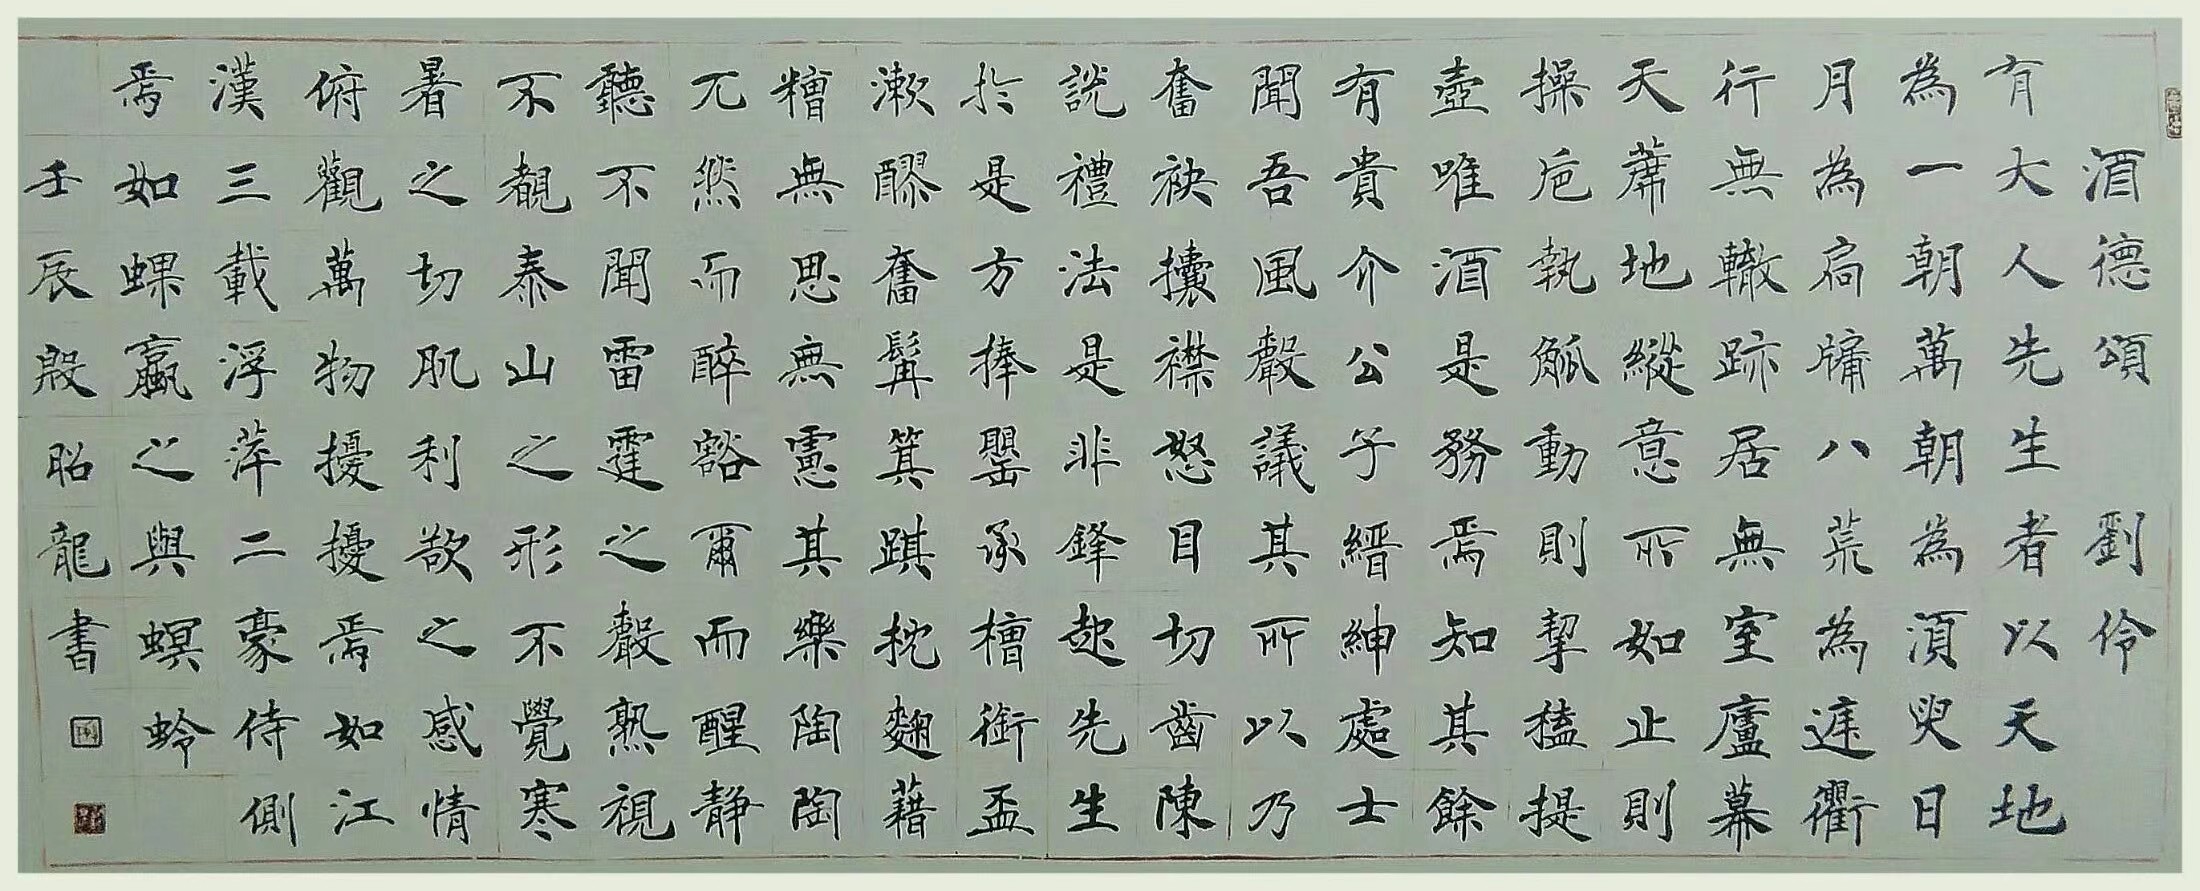 酒德頌 劉伶
有大人先生者以天地
為一朝萬朝為須臾日
月為扃牖八荒為遅衢
行無轍跡居無室廬幕
天蓆地縱意所如止則
操卮執觚動則挈榼提
壺唯酒是務焉知其餘
有貴介公子縉紳處士
聞吾風聲議其所以乃
奮袂攘襟怒目切齒陳
說禮法是非鋒起先生
於是方捧罌承槽銜盃
漱醪奮髯箕踑枕麴藉
糟無思無慮其樂陶陶
兀然而醉豁爾而醒靜
聽不聞雷霆之聲熟視
不覩泰山之形不覺寒
暑之切肌利欲之感情
俯觀萬物擾擾焉如江
漢三載浮萍二豪侍側
焉如蜾蠃之與螟蛉
壬辰殷昭龍書